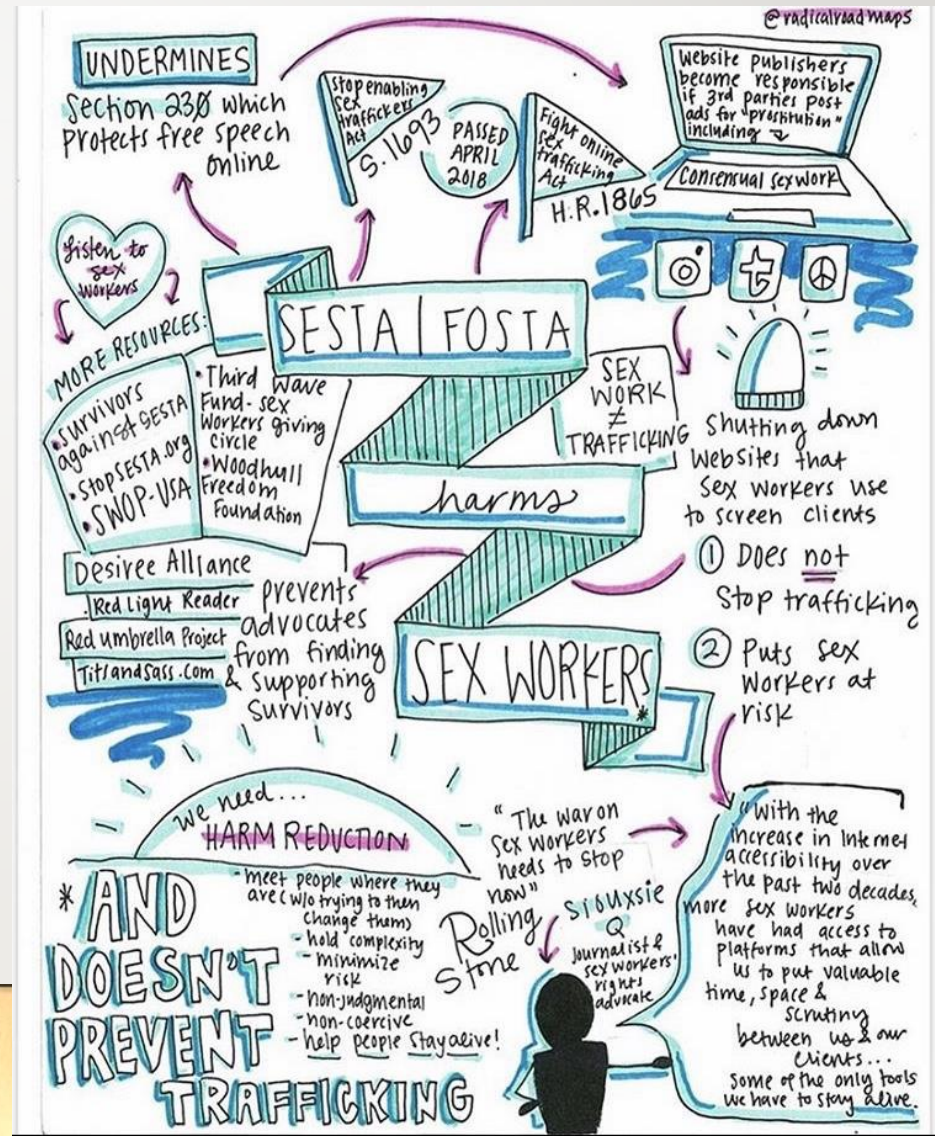 @radicalroadmaps
UNDERMINES
Section 230 which
protects free speech
online
Stop enabling
sex
traffickers
Act
S. 1693
PASSED
APRIL
2018
Fight online
sex
trafficking
Act
H.R. 1865
Website publishers
become responsible
if 3rd parties post
ads for "prostitution"
including
Consensual sex work
Listen to
sex
workers
MORE RESOURCES:
• Survivors
against SESTA
• StopSESTA.org
• SWOP-USA
• Third Wave
Fund - sex
Workers giving
circle
• Woodhull
Freedom
Foundation
Desiree Alliance
Red Light Reader
Red Umbrella Project
TitsandSass.com
SESTA | FOSTA
harms
SEX WORKERS*
SEX
WORK
≠
TRAFFICKING
Shutting down
websites that
sex workers use
to screen clients
① Does not
Stop trafficking
② Puts sex
workers at
risk
prevents
advocates
from finding
& supporting
survivors
we need...
HARM REDUCTION
- meet people where they
are (w/o trying to then
change them)
- hold complexity
- minimize
risk
- non-judgmental
- non-coercive
- help people stay alive!
* AND
DOESN'T
PREVENT
TRAFFICKING
"The war on
sex workers
needs to stop
now"
Rolling
Stone
Siouxsie
Q
journalist &
sex workers'
rights
advocate
"With the
increase in Internet
accessibility over
the past two decades,
more sex workers
have had access to
platforms that allow
us to put valuable
time, space &
scrutiny
between us & our
clients...
Some of the only tools
we have to stay alive.